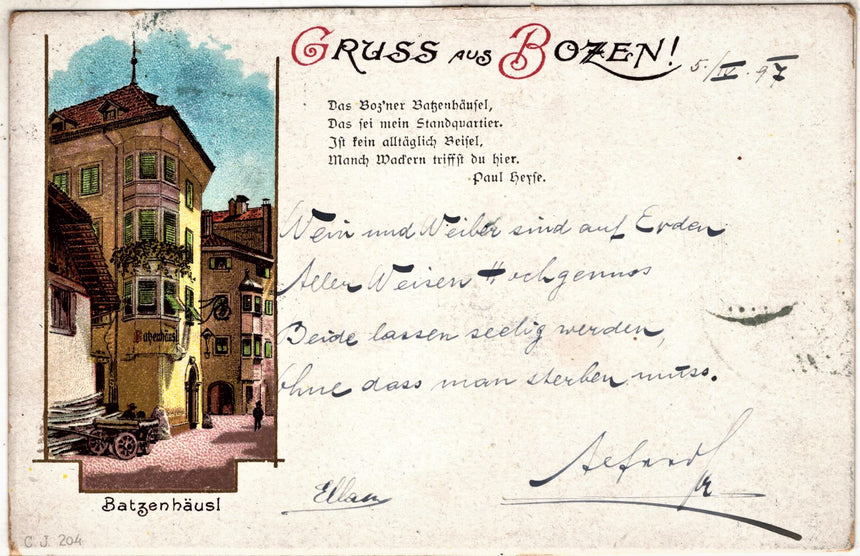 GRUSS AUS BOZEN!
5./IV. 97
Das Boz'ner Batzenhäusel,
Das sei mein Standquartier.
Ist kein alltäglich Beisel,
Manch Wackern triffst du hier.
Paul Heyse.
Wein und Weiber sind auf Erden
Aller Weisen Hochgenuss
Beide lassen seelig werden,
Ohne dass man sterben muss.
Batzenhäusl
Batzenhäusl
C. J. 204